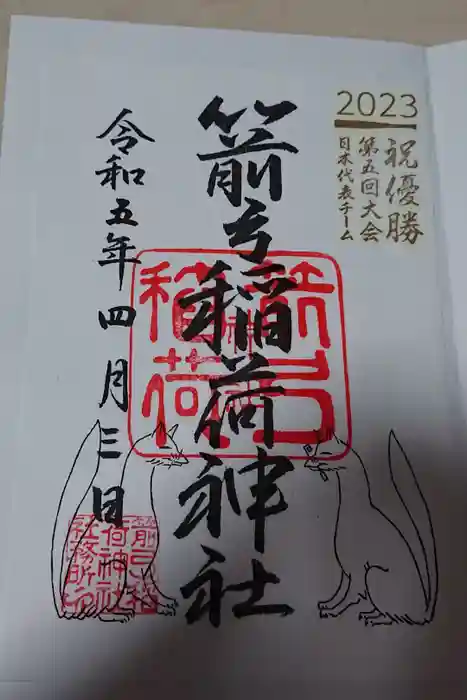 2023
祝優勝
第五回大会
日本代表チーム
箭弓稲荷神社
令和五年四月三日
箭弓
稲荷
箭弓稲
荷神社
社務所印